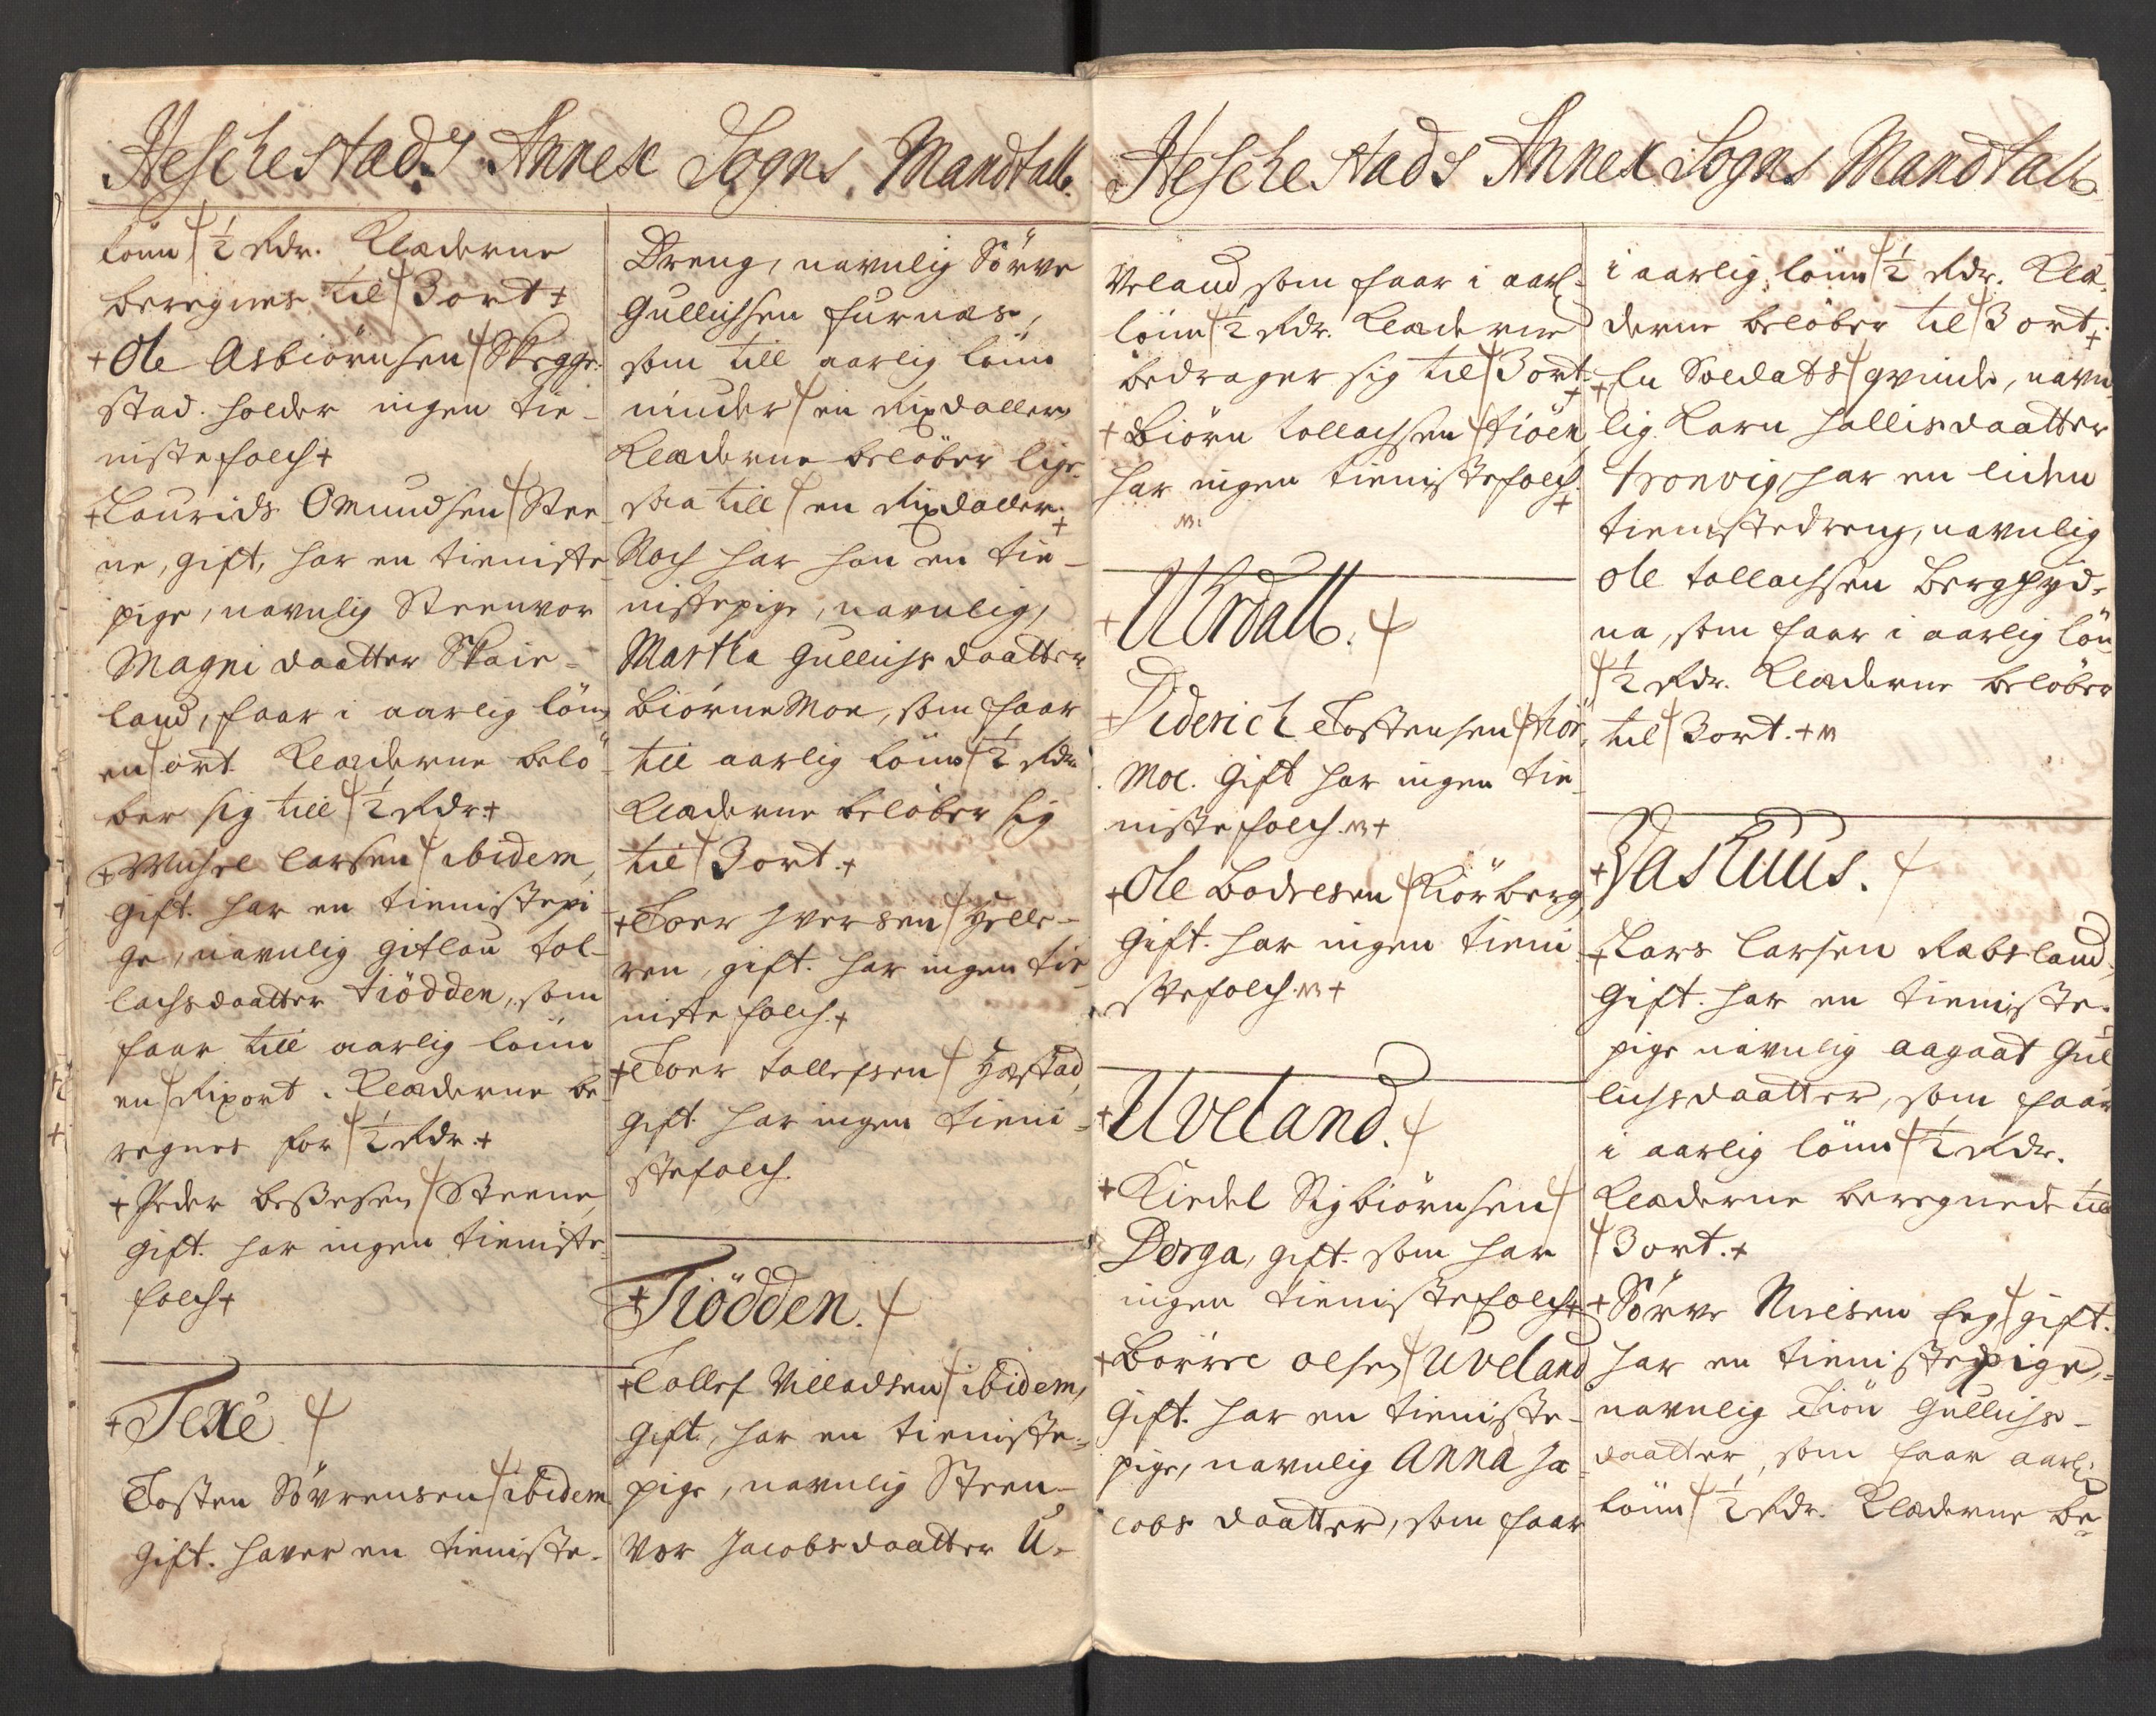 Heschestads Annex Sogns Mandtall.
lönn ½ Rdr. Klæderne
beregnes til 3 ort +
+ Ole Asbiörnsen Skegge-
stad. holder ingen tie-
nistefolch +
+ Laurids Omundsen Stee-
ne, gift, har en tieniste
pige, navnlig Steenvor
Magni daatter Skaie-
land, faar i aarlig lön
en ort Klæderne belö-
ber sig till ½ Rdr +
+ Michel Larsen ibidem,
gift. har en tienistepi-
ge, navnlig Gitlau Tol-
lachsdaatter Tiödden, som
faar till aarlig lönn
en Rixort. Klæderne be-
regnes for ½ Rdr. +
+ Peder Bessesen Steene,
gift. har ingen tieniste-
folch +
+ Texe
Tosten Sövrensen ibidem
gift. haver en tieniste-
Dreng, navnlig Sörve
Gullichsen Furnæs,
som till aarlig lönn
niuder en Rixdaller
Klæderne belöber lige-
saa till en Rixdaller. +
Noch har han en tie-
nistepige, navnlig,
Martha Gullichsdaatter
Biörnemoe, som faar
till aarlig lönn ½ Rdr
Klæderne belöber sig
til 3 ort. +
+ Toer Iversen Helle-
ren, gift. har ingen tie-
niste folch. +
+ Toer Tollefsen Hæstad,
gift. har ingen tieni-
stefolch.
+ Tiödden.
+ Tollef Villadsen ibidem,
gift, har en tieniste-
pige, navnlig Steen-
vor Jacobsdaatter U-
Heschestads Annex Sogns Mandtall
veland, som faar i aarl:
lönn ½ Rdr. Klæderne
bedrager sig til 3 ort. +
+ Biörn Tollachsen Tiöen,
har ingen tienistefolch. +
+ Urdall.
+ Diderich Tostensen Tiör
Moe. Gift har ingen tie-
nistefolch. +
+ Ole Bodvesen Kiörberg,
Gift. har ingen tieni
stefolch. +
+ Uveland.
+ Kiedel Sigbiörnsen
Dorga, gift. som har
ingen tienistefolch +
+ Börre Olsen Uveland
Gift. har en tieniste-
pige, navnlig Anna Ja-
cobs daatter, som faar
i aarlig lönn ½ Rdr. Klæ-
derne belöber til 3 ort +
+ En Soldats qvinde, navn-
lig Karn Hallisdaatter
Tronvig har en liden
tienistedreng, navnlig
Ole Tollachsen Berghyd-
na, som faar i aarlig lön
½ Rdr. Klæderne belöber
til 3 ort. +
+ Vashuus.
+ Lars Larsen Rabsland
Gift. har en tieniste-
pige navnlig Aagaat Gul-
lichsdaatter, som faar
i aarlig lönn ½ Rdr.
Klæderne beregnede till
3 ort. +
+ Sörve Nielsen Eeg, gift.
har en tienistepige,
navnlig Siön Gullichs-
daatter, som faar aarl:
lönn ½ Rdr. Klæderne be-